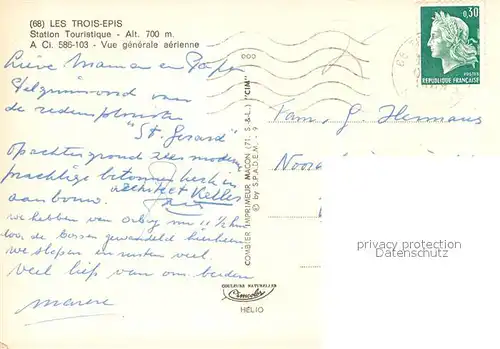 (68) LES TROIS-EPIS
Station Touristique - Alt. 700 m.
A Ci. 586-103 - Vue générale aérienne
Lieve Maman en Papa
Pelgrimsoord van
de redemptoristen
"St. Gerard"
op achtergrond zeer modern
prachtige betonnen kerk in
aanbouw. architekt Keller
we hebben van Orbey in 1 1/2 hr
door de bossen gewandeld hierheen
we slapen en rusten veel.
veel liefs van ons beiden
COMBIER IMPRIMEUR MACON (71, S.-&-L.) "CIM"
© by S.P.A.D.E.M. - 9
COULEURS NATURELLES
Cimcolor
HÉLIO
0,30
POSTES
RÉPUBLIQUE FRANÇAISE
Fam. G. Hermans
protection expressive
Datenschutz